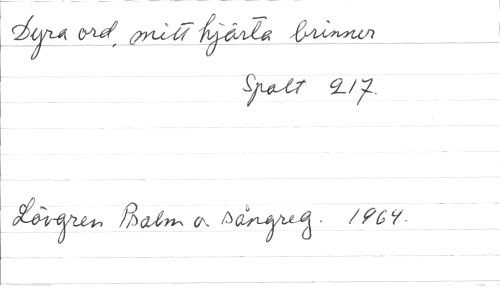 Dyra ord, mitt hjärta brinner
Spalt 217.
Lövgren Psalm o. sångreg. 1964.